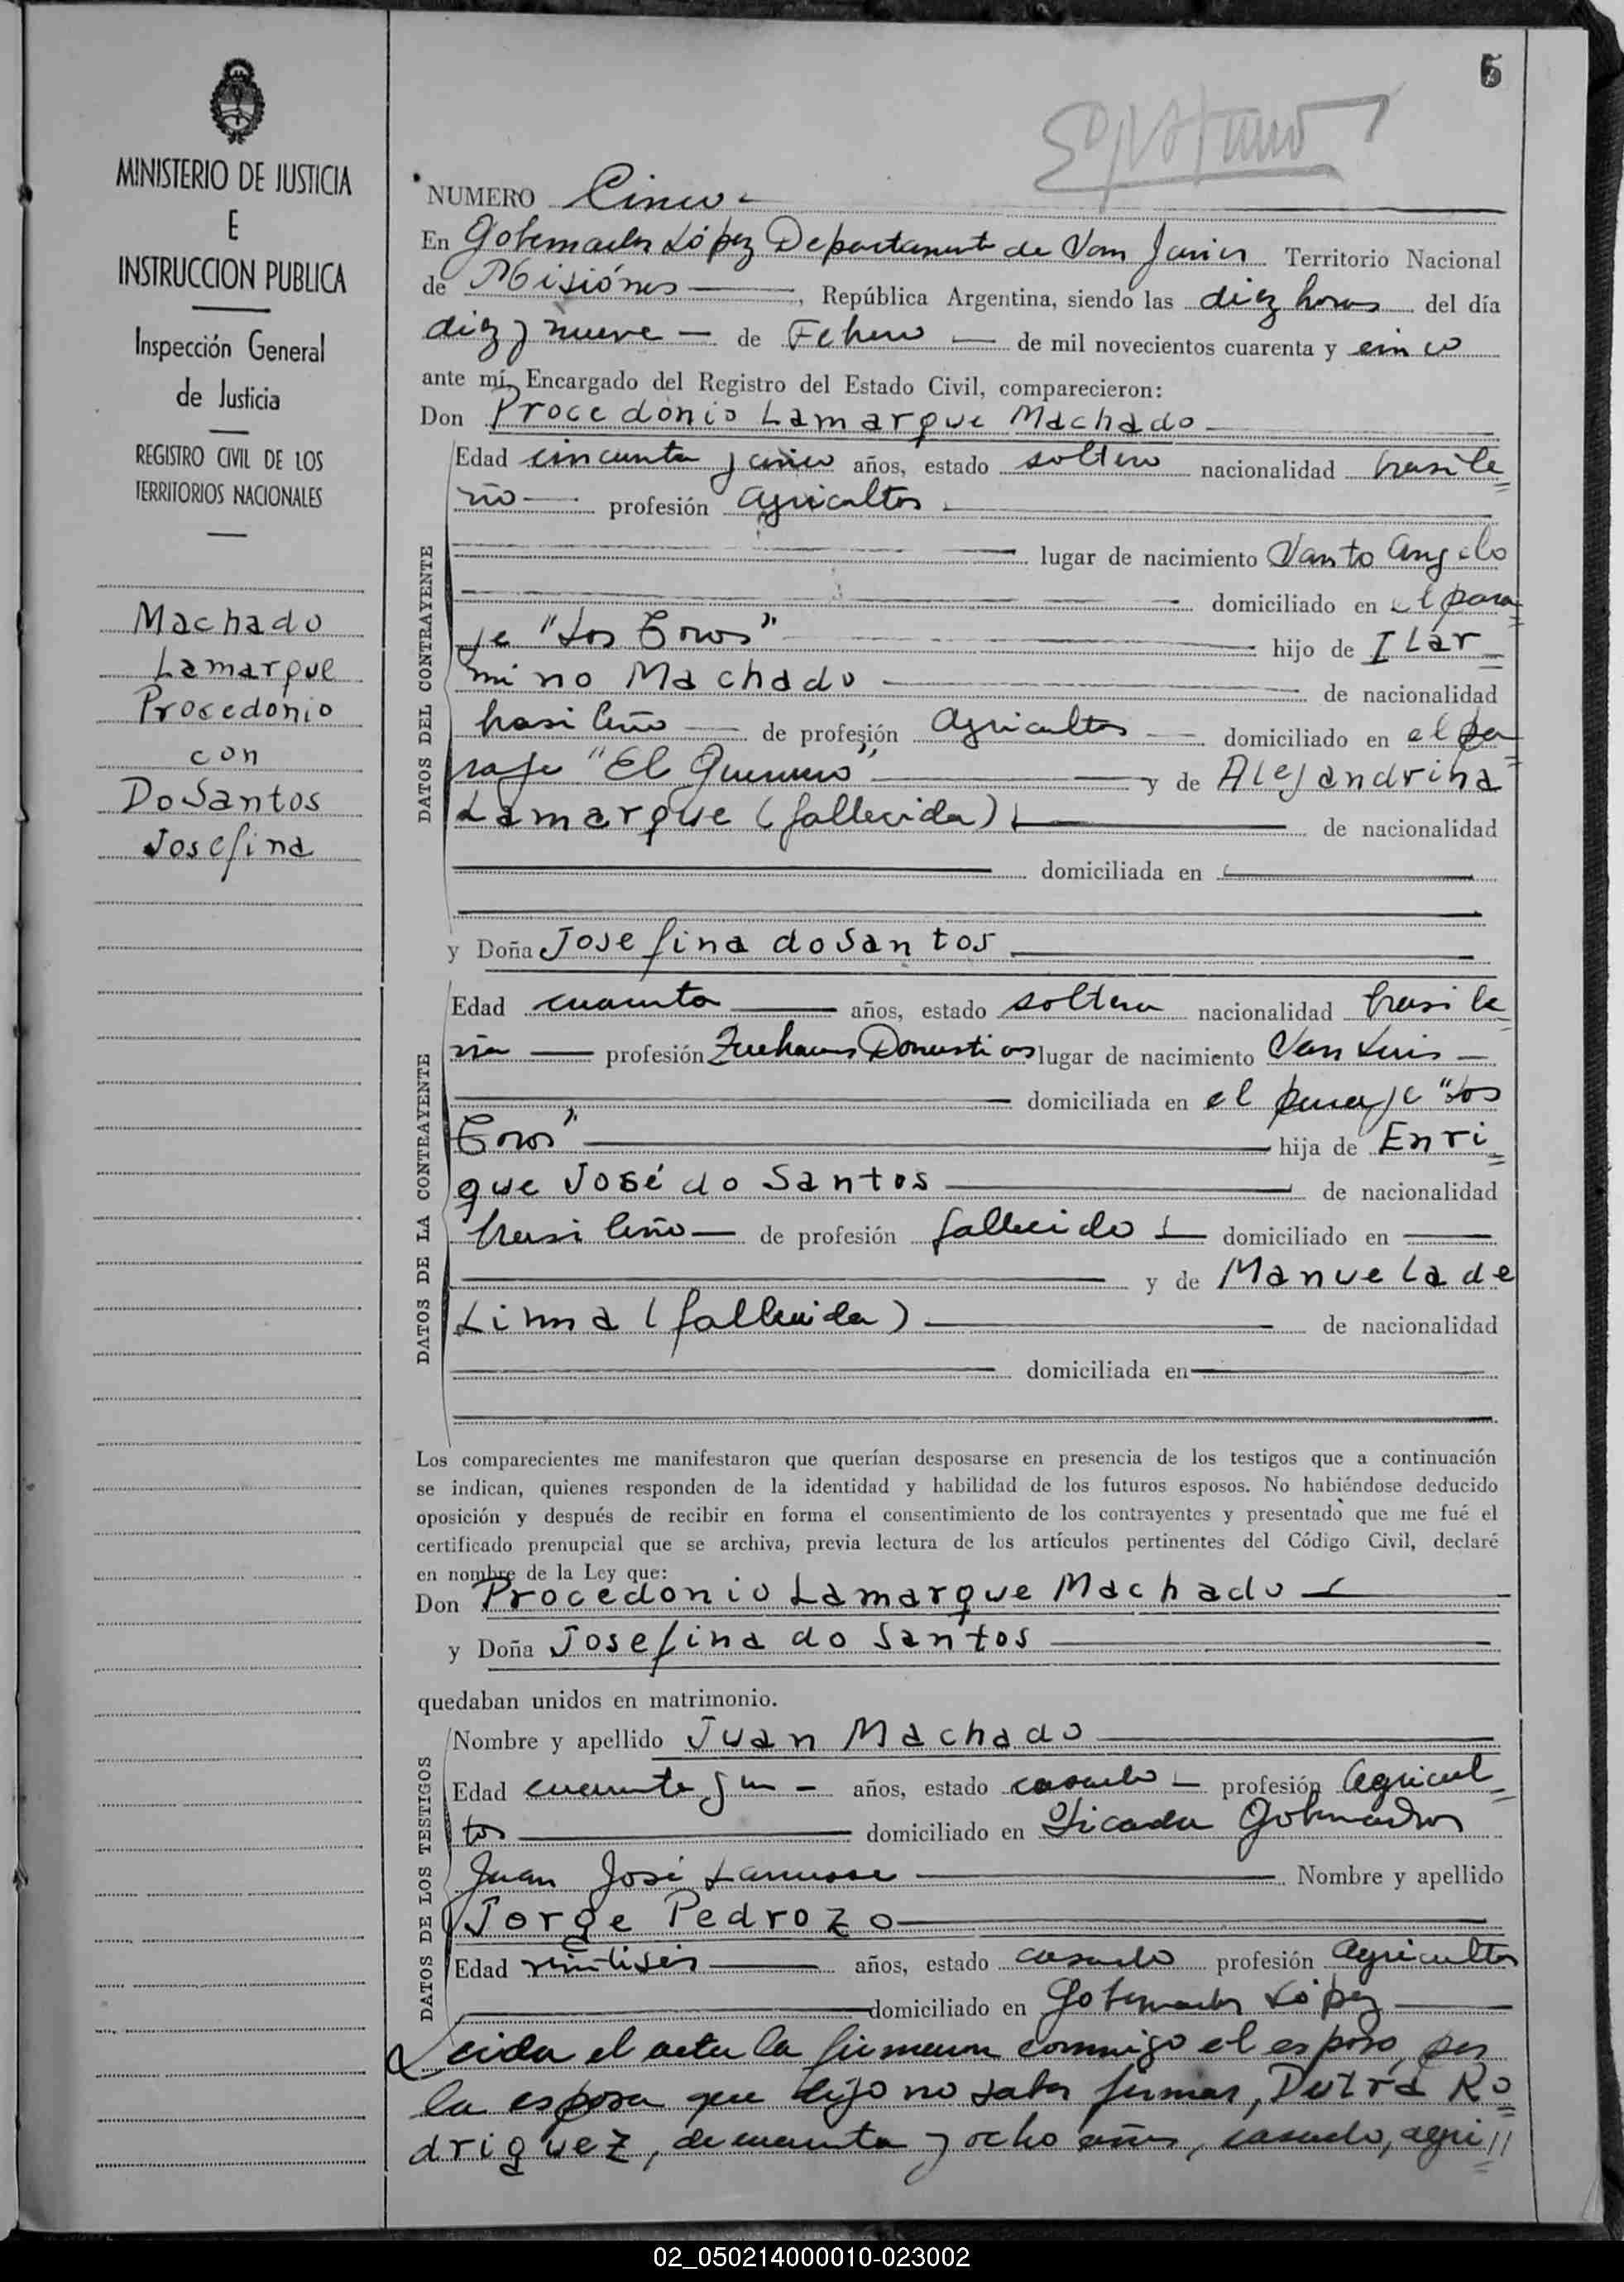 5
MINISTERIO DE JUSTICIA
E
INSTRUCCION PUBLICA
Inspección General
de Justicia
REGISTRO CIVIL DE LOS
TERRITORIOS NACIONALES
Machado
Lamarque
Procedonio
con
Do Santos
Josefina
NUMERO Cinco
En Gobernador López Departamento de San Javier Territorio Nacional
de Misiónes, República Argentina, siendo las diez horas del día
diez y nueve de Febrero de mil novecientos cuarenta y cinco
ante mí, Encargado del Registro del Estado Civil, comparecieron:
Don Procedonio Lamarque Machado
DATOS DEL CONTRAYENTE
Edad cincuenta y cinco años, estado soltero nacionalidad brasile=
ño profesión agricultor
lugar de nacimiento Santo Angelo
domiciliado en el para=
je "Los Toros" hijo de Ilar=
mino Machado de nacionalidad
brasileño de profesión agricultor domiciliado en el pa=
raje "El Guerrero" y de Alejandrina
Lamarque (fallecida) de nacionalidad
domiciliada en
y Doña Josefina do Santos
DATOS DE LA CONTRAYENTE
Edad cuarenta años, estado soltera nacionalidad brasile=
ña profesión Quehaceres Domesticos lugar de nacimiento San Luis
domiciliada en el paraje "Los
Toros" hija de Enri=
que José do Santos de nacionalidad
brasileño de profesión fallecido domiciliado en
y de Manuela de
Lima (fallecida) de nacionalidad
domiciliada en
Los comparecientes me manifestaron que querían desposarse en presencia de los testigos que a continuación
se indican, quienes responden de la identidad y habilidad de los futuros esposos. No habiéndose deducido
oposición y después de recibir en forma el consentimiento de los contrayentes y presentado que me fué el
certificado prenupcial que se archiva, previa lectura de los artículos pertinentes del Código Civil, declaré
en nombre de la Ley que:
Don Procedonio Lamarque Machado
y Doña Josefina do Santos
quedaban unidos en matrimonio.
DATOS DE LOS TESTIGOS
Nombre y apellido Juan Machado
Edad cuarenta y un años, estado casado profesión agricul=
tor domiciliado en Picada Gobernador
Juan José Lanusse Nombre y apellido
Jorge Pedrozo
Edad veintiseis años, estado casado profesión agricultor
domiciliado en Gobernador López
Leida el acta la firmaron conmigo el esposo, por
la esposa que dijo no saber firmar, Dutra Ro=
driguez, de cuarenta y ocho años, casado, agri//
02_050214000010-023002